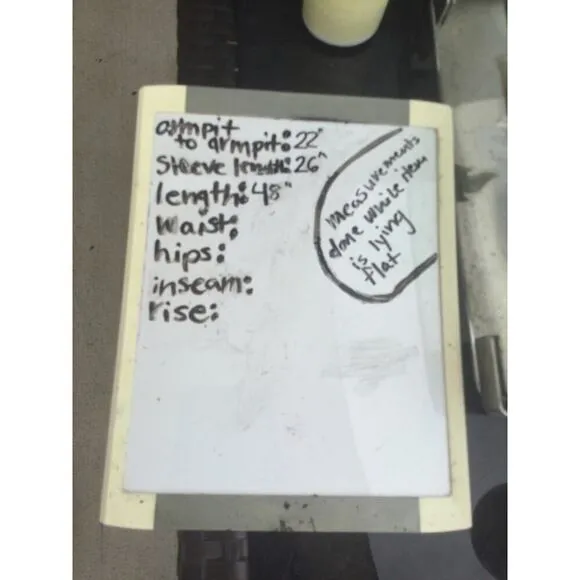 armpit
to armpit: 22"
Sleeve length: 26"
length: 48"
Waist:
hips:
inseam:
rise:
measurements
done while item
is lying
flat